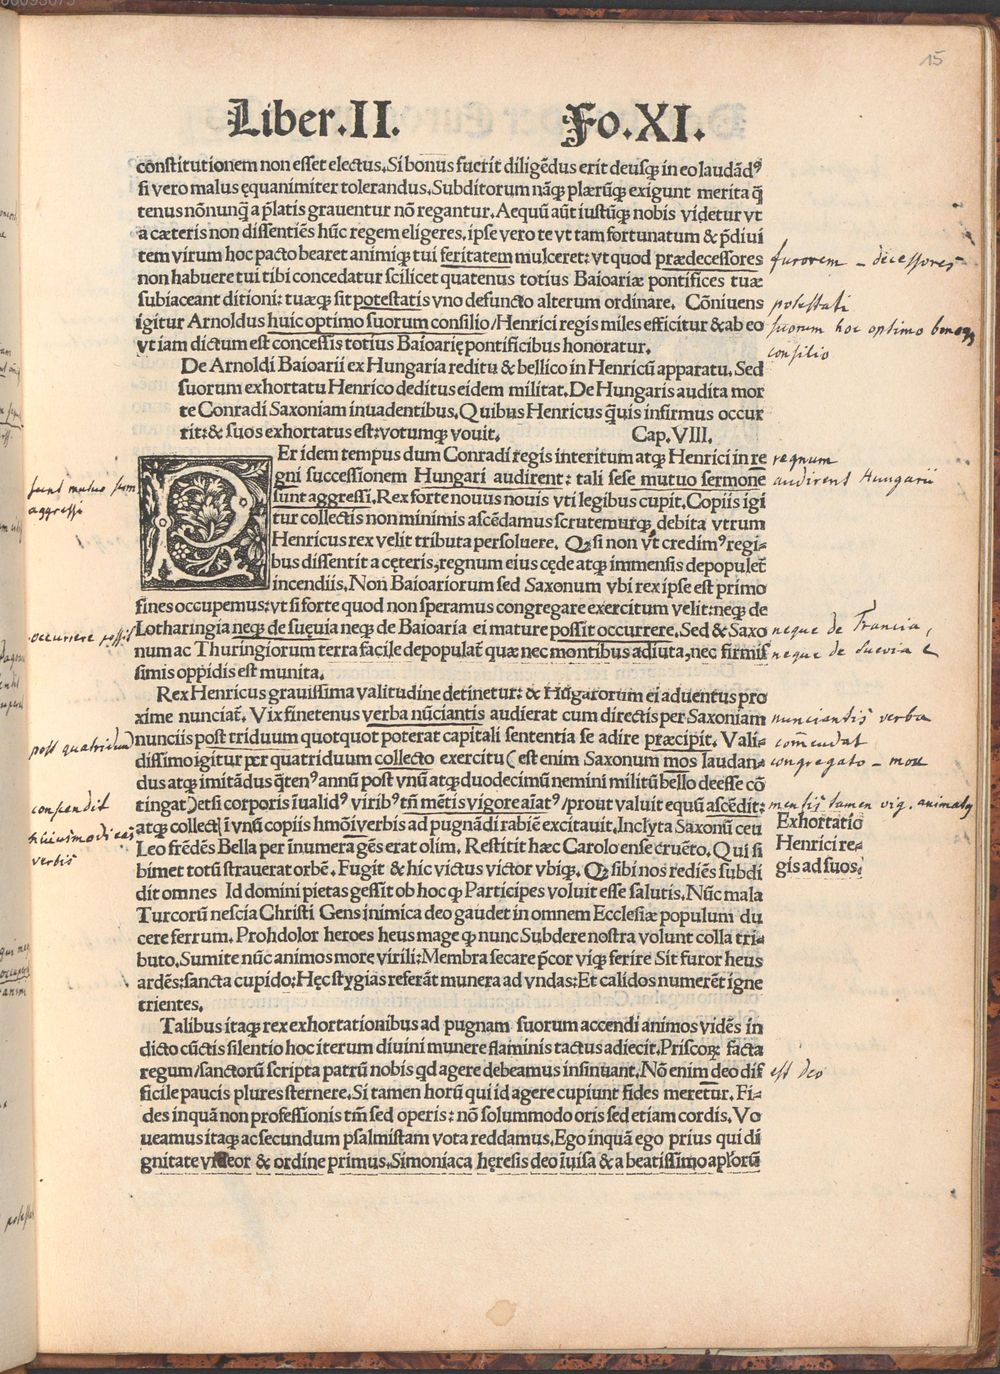 15
Liber.II. Fo.XI.
constitutionem non esset electus. Si bonus fuerit diligēdus erit deusq; in eo laudādꝰ
si vero malus ęquanimiter tolerandus. Subditorum nāq; plærūq; exigunt merita q̄
tenus nōnunq̄ a p̄latis grauentur nō regantur. Aequū aūt iustūq; nobis videtur vt
a cæteris non dissentiēs hūc regem eligeres, ipse vero te vt tam fortunatum & p̄diui
tem virum hoc pacto bearet animiq; tui feritatem mulceret: vt quod prædecessores
non habuere tui tibi concedatur scilicet quatenus totius Baioariæ pontifices tuæ
subiaceant ditioni: tuæq; sit potestatis vno defuncto alterum ordinare. Cōniuens
igitur Arnoldus huic optimo suorum consilio/Henrici regis miles efficitur & ab eo
vt iam dictum est concessis totius Baioarię pontificibus honoratur.
De Arnoldi Baioarii ex Hungaria reditu & bellico in Henricū apparatu. Sed
suorum exhortatu Henrico deditus eidem militat. De Hungaris audita mor
te Conradi Saxoniam inuadentibus. Quibus Henricus q̄uis infirmus occur
rit: & suos exhortatus est: votumq; vouit. Cap.VIII.
PEr idem tempus dum Conradi regis interitum atq; Henrici in re
gni successionem Hungari audirent: tali sese mutuo sermone
sunt aggressi. Rex forte nouus nouis vti legibus cupit. Copiis igi
tur collectis non minimis ascēdamus scrutemurq; debita vtrum
Henricus rex velit tributa persoluere. Qꝫ si non vt̄ credimꝰ regi-
bus dissentit a cęteris, regnum eius cęde atq; immensis depopulet̄
incendiis. Non Baioariorum sed Saxonum vbi rex ipse est primo
fines occupemus: vt si forte quod non speramus congregare exercitum velit: neq; de
Lotharingia neq; de sueuia neq; de Baioaria ei mature possit occurrere. Sed & Saxo
num ac Thuringiorum terra facile depopulat̄ quæ nec montibus adiuta, nec firmis
simis oppidis est munita.
Rex Henricus grauissima valitudine detinetur: & Hūgarorum ei aduentus pro
xime nunciat̄. Vix finetenus verba nūciantis audierat cum directis per Saxoniam
nunciis post triduum quotquot poterat capitali sententia se adire præcipit. Vali-
dissimo igitur per quatriduum collecto exercitu (est enim Saxonum mos laudan-
dus atq; imitādus q̄tenꝰ annū post vnū atq; duodecimū nemini militū bello deesse cō
tingat) etsi corporis īualidꝰ viribꝰ tn̄ mētis vigore aīatꝰ/prout valuit equū ascēdit:
atq; collect̄ ī vnū copiis hmōi verbis ad pugnādi rabiē excitauit. Inclyta Saxonū ceu
Leo frēdēs Bella per īnumera gēs erat olim. Restitit hæc Carolo ense cruēto. Qui si
bimet totū strauerat orbē. Fugit & hic victus victor vbiq;. Qꝫ sibi nos rediēs subdi
dit omnes Id domini pietas gessit ob hoc q; Participes voluit esse salutis. Nūc mala
Turcorū nescia Christi Gens inimica deo gaudet in omnem Ecclesiæ populum du
cere ferrum. Prohdolor heroes heus mage q; nunc Subdere nostra volunt colla tri-
buto. Sumite nūc animos more virili: Membra secare p̄cor viq; ferire Sit furor heus
ardēs: sancta cupido: Hęc stygias referāt munera ad vndas: Et calidos numerēt igne
trientes.
Talibus itaq; rex exhortationibus ad pugnam suorum accendi animos vidēs in
dicto cūctis silentio hoc iterum diuini munere flaminis tactus adiecit. Priscoꝝ facta
regum/sanctorū scripta patrū nobis qd agere debeamus insinuant. Nō enim deo dif
ficile paucis plures sternere. Si tamen horū qui id agere cupiunt fides meretur. Fi-
des inquā non professionis tm̄ sed operis: nō solummodo oris sed etiam cordis. Vo
ueamus itaq; ac secundum psalmistam vota reddamus. Ego inquā ego prius qui di
gnitate videor & ordine primus. Simoniaca hęresis deo īuisa & a beatissimo apłorū
furorem – decessores
potestati
suorum hoc optimo
consilio
regnum
audirent Hungarii
sunt mutuo
aggressi
occurrere possis
neque de Francia,
neque de Suevia
nunciantis verba
post quatriduum
commendat
congregato – more
mensis tamen vig. animatus
conscendit
huiusmodi eas
verbis
Exhortatio
Henrici re-
gis ad suos.
est deo